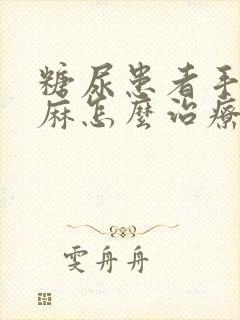 糖尿患者手
麻怎麼治療
雯舟舟